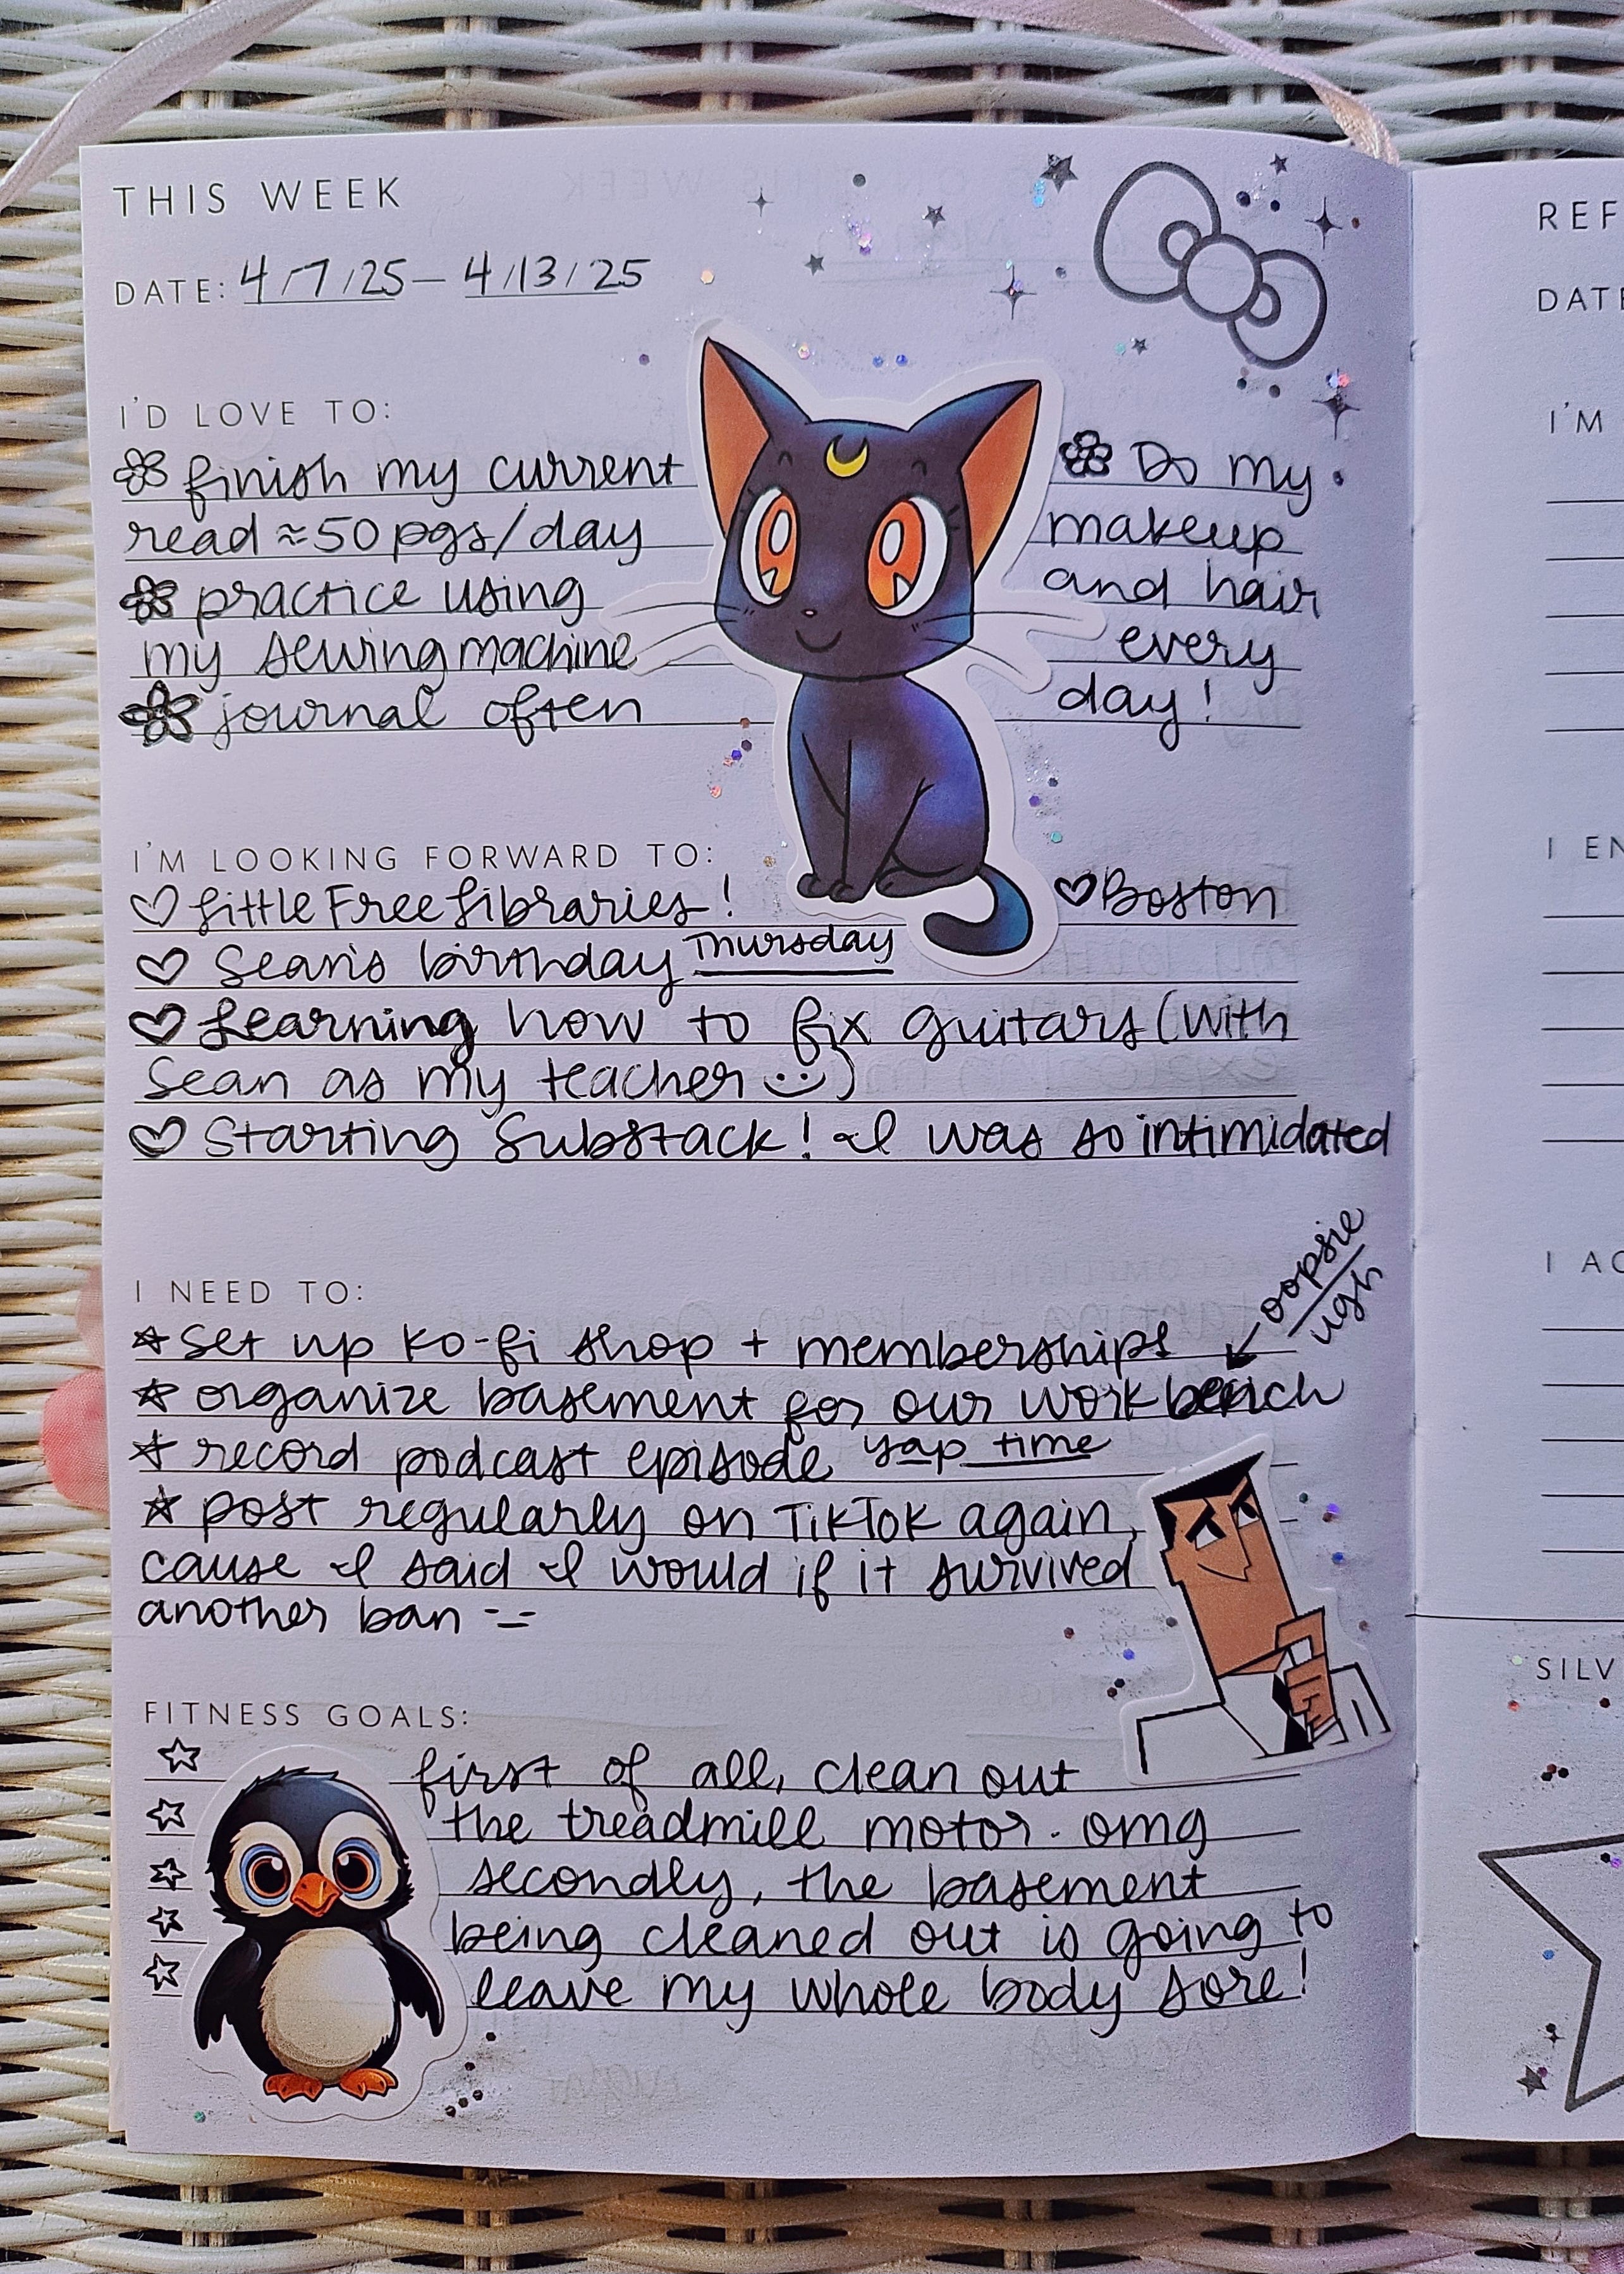 THIS WEEK
DATE: 4/7/25 – 4/13/25
I'D LOVE TO:
finish my current
read ≈50 pgs/day
practice using
my sewing machine
journal often
Do my
makeup
and hair
every
day!
I'M LOOKING FORWARD TO:
Little Free Libraries!
Boston
Sean's birthday Thursday
Learning how to fix guitars (with
Sean as my teacher :))
Starting Substack! I was so intimidated
I NEED TO:
oopsie
ugh
set up ko-fi shop + memberships
organize basement for our work bench
record podcast episode yap time
post regularly on TikTok again,
cause I said I would if it survived
another ban -_-
FITNESS GOALS:
first of all, clean out
the treadmill motor. omg
secondly, the basement
being cleaned out is going to
leave my whole body sore!
REF
DATE
I'M
I EN
I AC
SILV